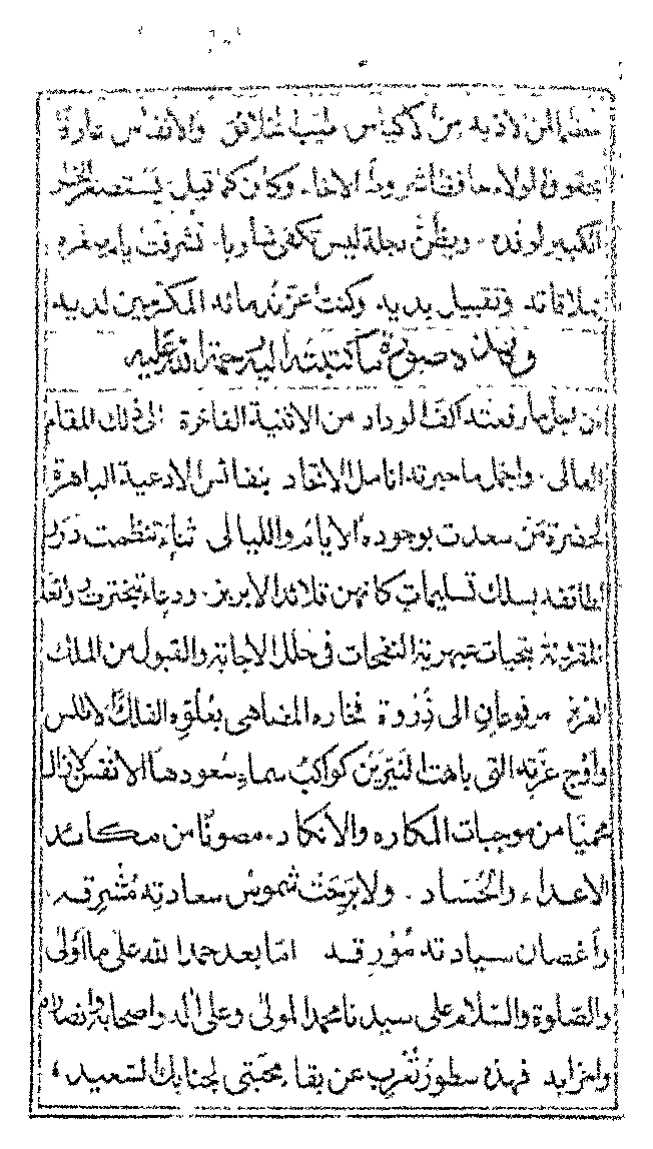 لمن لاذ به من الأكياس طيب الخلائق والانفاس عارفًا
بحقوق الولاء حافظًا شروط الاخاء وكان كما قيل يستصغر الخطر
الكبير لوفده ويظن دجلة ليس تكفى شاربا تشرفت
بملاقاته وتقبيل يديه وكنت اعز ندمائه المكرمين لديه
وهذه صورة ما كتبته اليه رحمة الله عليه
ان اجل ما رفعته اكف الوراد من الاثنية الفاخرة الى ذلك المقام
العالى واجمل ما حبرته انامل الاتحاد بنفائس الادعية الباهرة
لحضرة من سعدت بوجوده الايام والليالى ثناء تنظمت درر
لطائفه بسلك تسليمات كانهن قلائد الابريز ودعاء تبخترت
بتحيات عبهرية النفحات فى حلل الاجابة والقبول من الملك
مرفوعان الى ذروة فخاره المضاهى بعلوه الفلك الاطلس
واوج عزته التى باهت النيرين كواكب سماء سعودها الانفس لازال
محميًا من موجبات المكاره والانكاد مصونًا من مكائد
الاعداء والحساد ولا برحت شموس سعادته مشرقه
واغصان سيادته مورقه امّا بعد حمد الله على ما اولى
والصلوة والسلام على سيدنا محمد المولى وعلى اله واصحابه وانصاره
واحزابه فهذه سطور تعرب عن بقاء محبتى لجنابك السعيد